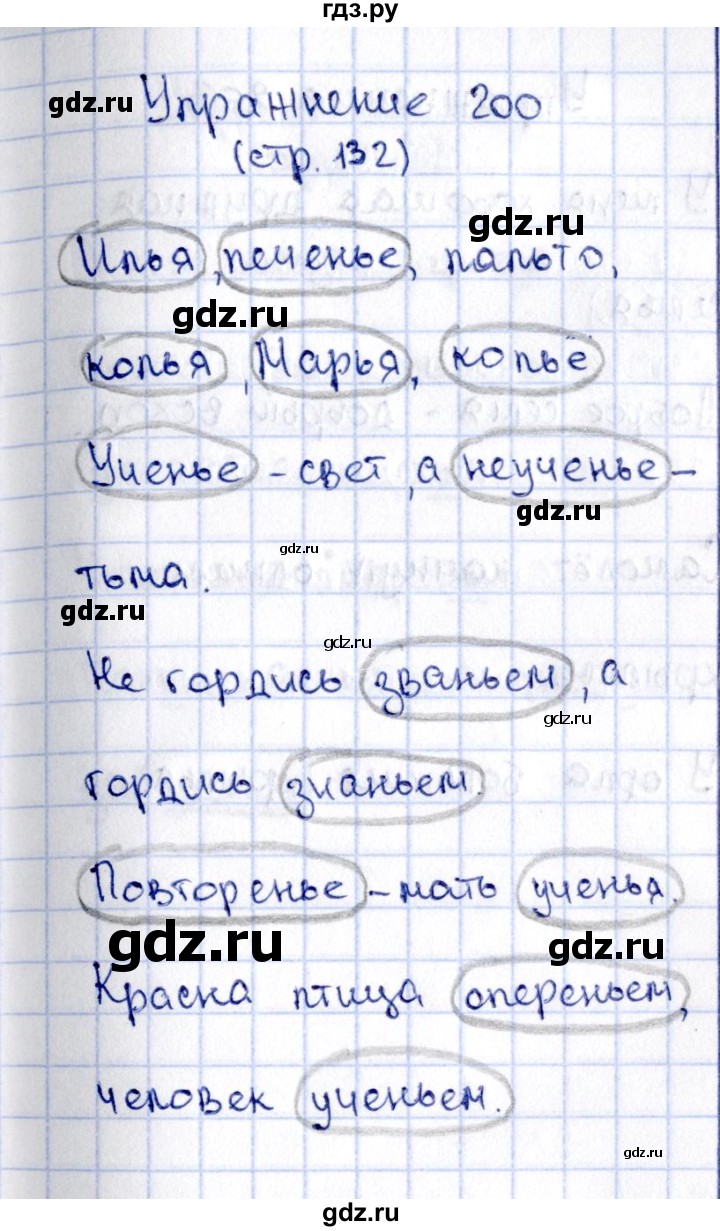 гдз.ру
Упражнение 200
gdz.ru
(стр. 132)
gdz.ru
Илья, печенье, пальто,
gdz.ru
копья, Марья, копьё
Ученье - свет, а неученье -
gdz.ru
gdz.ru
тьма.
gdz.ru
gdz.ru
Не гордись званьем, а
gdz.ru
гордись знаньем.
Повторенье - мать ученья.
gdz.ru
gdz.ru
Красна птица опереньем,
человек ученьем.
gdz.ru
gdz.ru